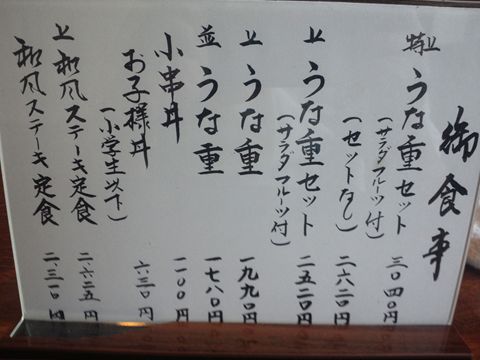 御食事
特上 うな重セット (サラダフルーツ付) 三〇四〇円
(セットなし) 二六二〇円
上 うな重セット (サラダフルーツ付) 二五二〇円
上 うな重 一九九〇円
並 うな重 一七八〇円
小串丼 一一〇〇円
お子様丼 (小学生以下) 六三〇円
上 和風ステーキ定食 二、六二五円
和風ステーキ定食 二、三一〇円